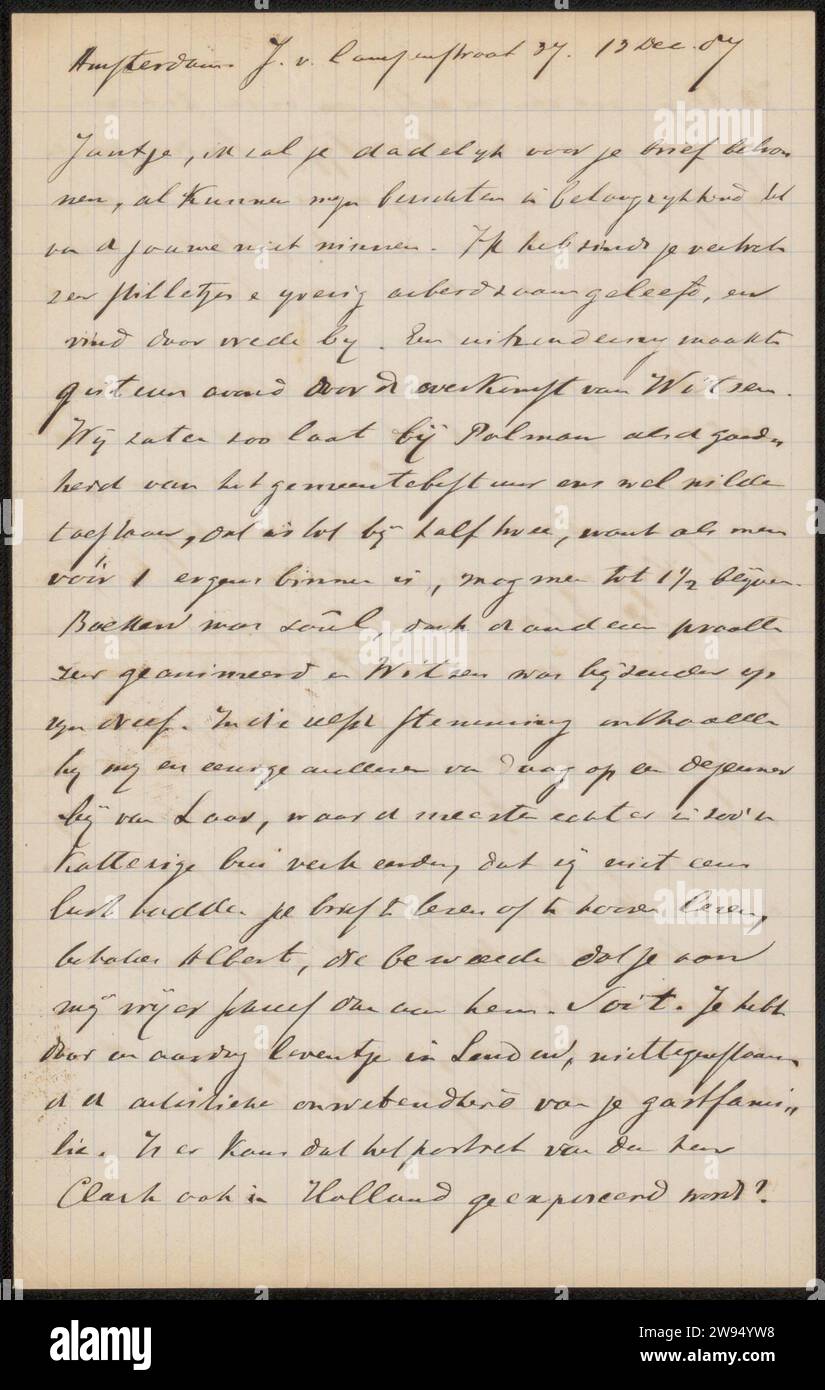 Amsterdam J. v. Campenstraat 37. 13 Dec. 87
Jantje, ik zal je dadelijk voor je brief beloo
nen, al kunnen mijn berichten in belangrijkheid bij
de jouwe niet winnen. Ik heb sinds je vertrek
zeer stilletjes en ijverig arbeidzaam geleefd, en
vind daar vrede bij. Een uitzondering maakte
gisteren avond door de overkomst van Witsen.
Wij zaten zoo laat bij Polman als de goeder
heid van het gemeentebestuur ons wel wilde
toestaan, dat is tot bij half twee, want als men
vóór 1 ergens binnen is, mag men tot 1 1/2 blijven.
Boeken was saûl, doch de anderen praatten
zeer geanimeerd en Witsen was bijzonder op
zijn dreef. In die zelfde stemming onthaalde
hij mij en eenige anderen van daag op een dejeuner
bij van Laar, waar de meesten echter in zoo'n
katterige bui verkeerden, dat zij niet eens
lust hadden je brief te lezen of te hooren lezen,
behalve Albert, die beweerde dat je aan
mij vrijer schreef dan aan hem. Soit. Je hebt
daar een aardig leventje in Londen, niettegenstaan
de de artistieke onwetendheid van je gastfami„
lie. Is er kans dat het portret van den heer
Clark ook in Holland geexposeerd wordt?
alamy
Image ID: 2W94YW8
www.alamy.com